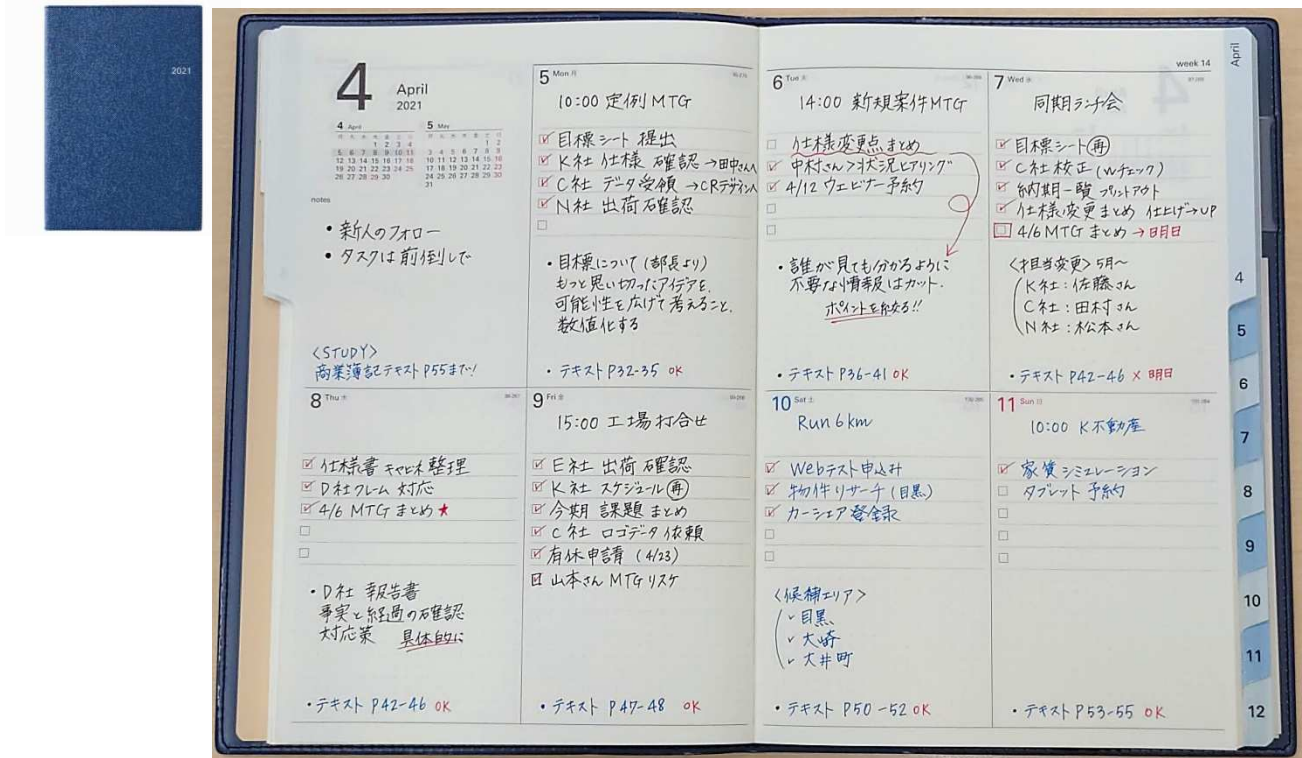 2021
4
April
2021
4 April
5 May
notes
・新人のフォロー
・タスクは前倒しで
〈STUDY〉
商業簿記テキスト P55まで!
5 Mon 月
10:00 定例MTG
目標シート 提出
K社 仕様 確認 →田中さんへ
C社 データ受領 →CRデザインへ
N社 出荷確認
・目標について (部長より)
もっと思い切ったアイデアを、
可能性を広げて考えること、
数値化する
・テキスト P32-35 OK
6 Tue 火
14:00 新規案件MTG
仕様変更点まとめ
中村さん>状況ヒアリング
4/12 ウェビナー予約
・誰が見ても分かるように
不要な情報はカット.
ポイントを絞る!!
・テキスト P36-41 OK
week 14
7 Wed 水
同期ランチ会
目標シート(再)
C社校正 (Wチェック)
納期一覧 プリントアウト
仕様変更まとめ 仕上げ→UP
4/6 MTG まとめ →明日
〈担当変更〉5月〜
K社:佐藤さん
C社:田村さん
N社:松本さん
・テキスト P42-46 × 明日
8 Thu 木
仕様書 キャビネ整理
D社クレーム 対応
4/6 MTG まとめ★
・D社 報告書
事実と経過の確認
対応策 具体的に
・テキスト P42-46 OK
9 Fri 金
15:00 工場打合せ
E社 出荷確認
K社 スケジュール(再)
今期 課題まとめ
C社 ロゴデータ依頼
有休申請 (4/23)
山本さん MTG リスケ
・テキスト P47-48 OK
10 Sat 土
Run 6km
Webテスト申込み
物件リサーチ(目黒)
カーシェア登録
〈候補エリア〉
✓目黒
✓大崎
✓大井町
・テキスト P50-52 OK
11 Sun 日
10:00 K不動産
家賃シミュレーション
タブレット 予約
・テキスト P53-55 OK
April
4
5
6
7
8
9
10
11
12